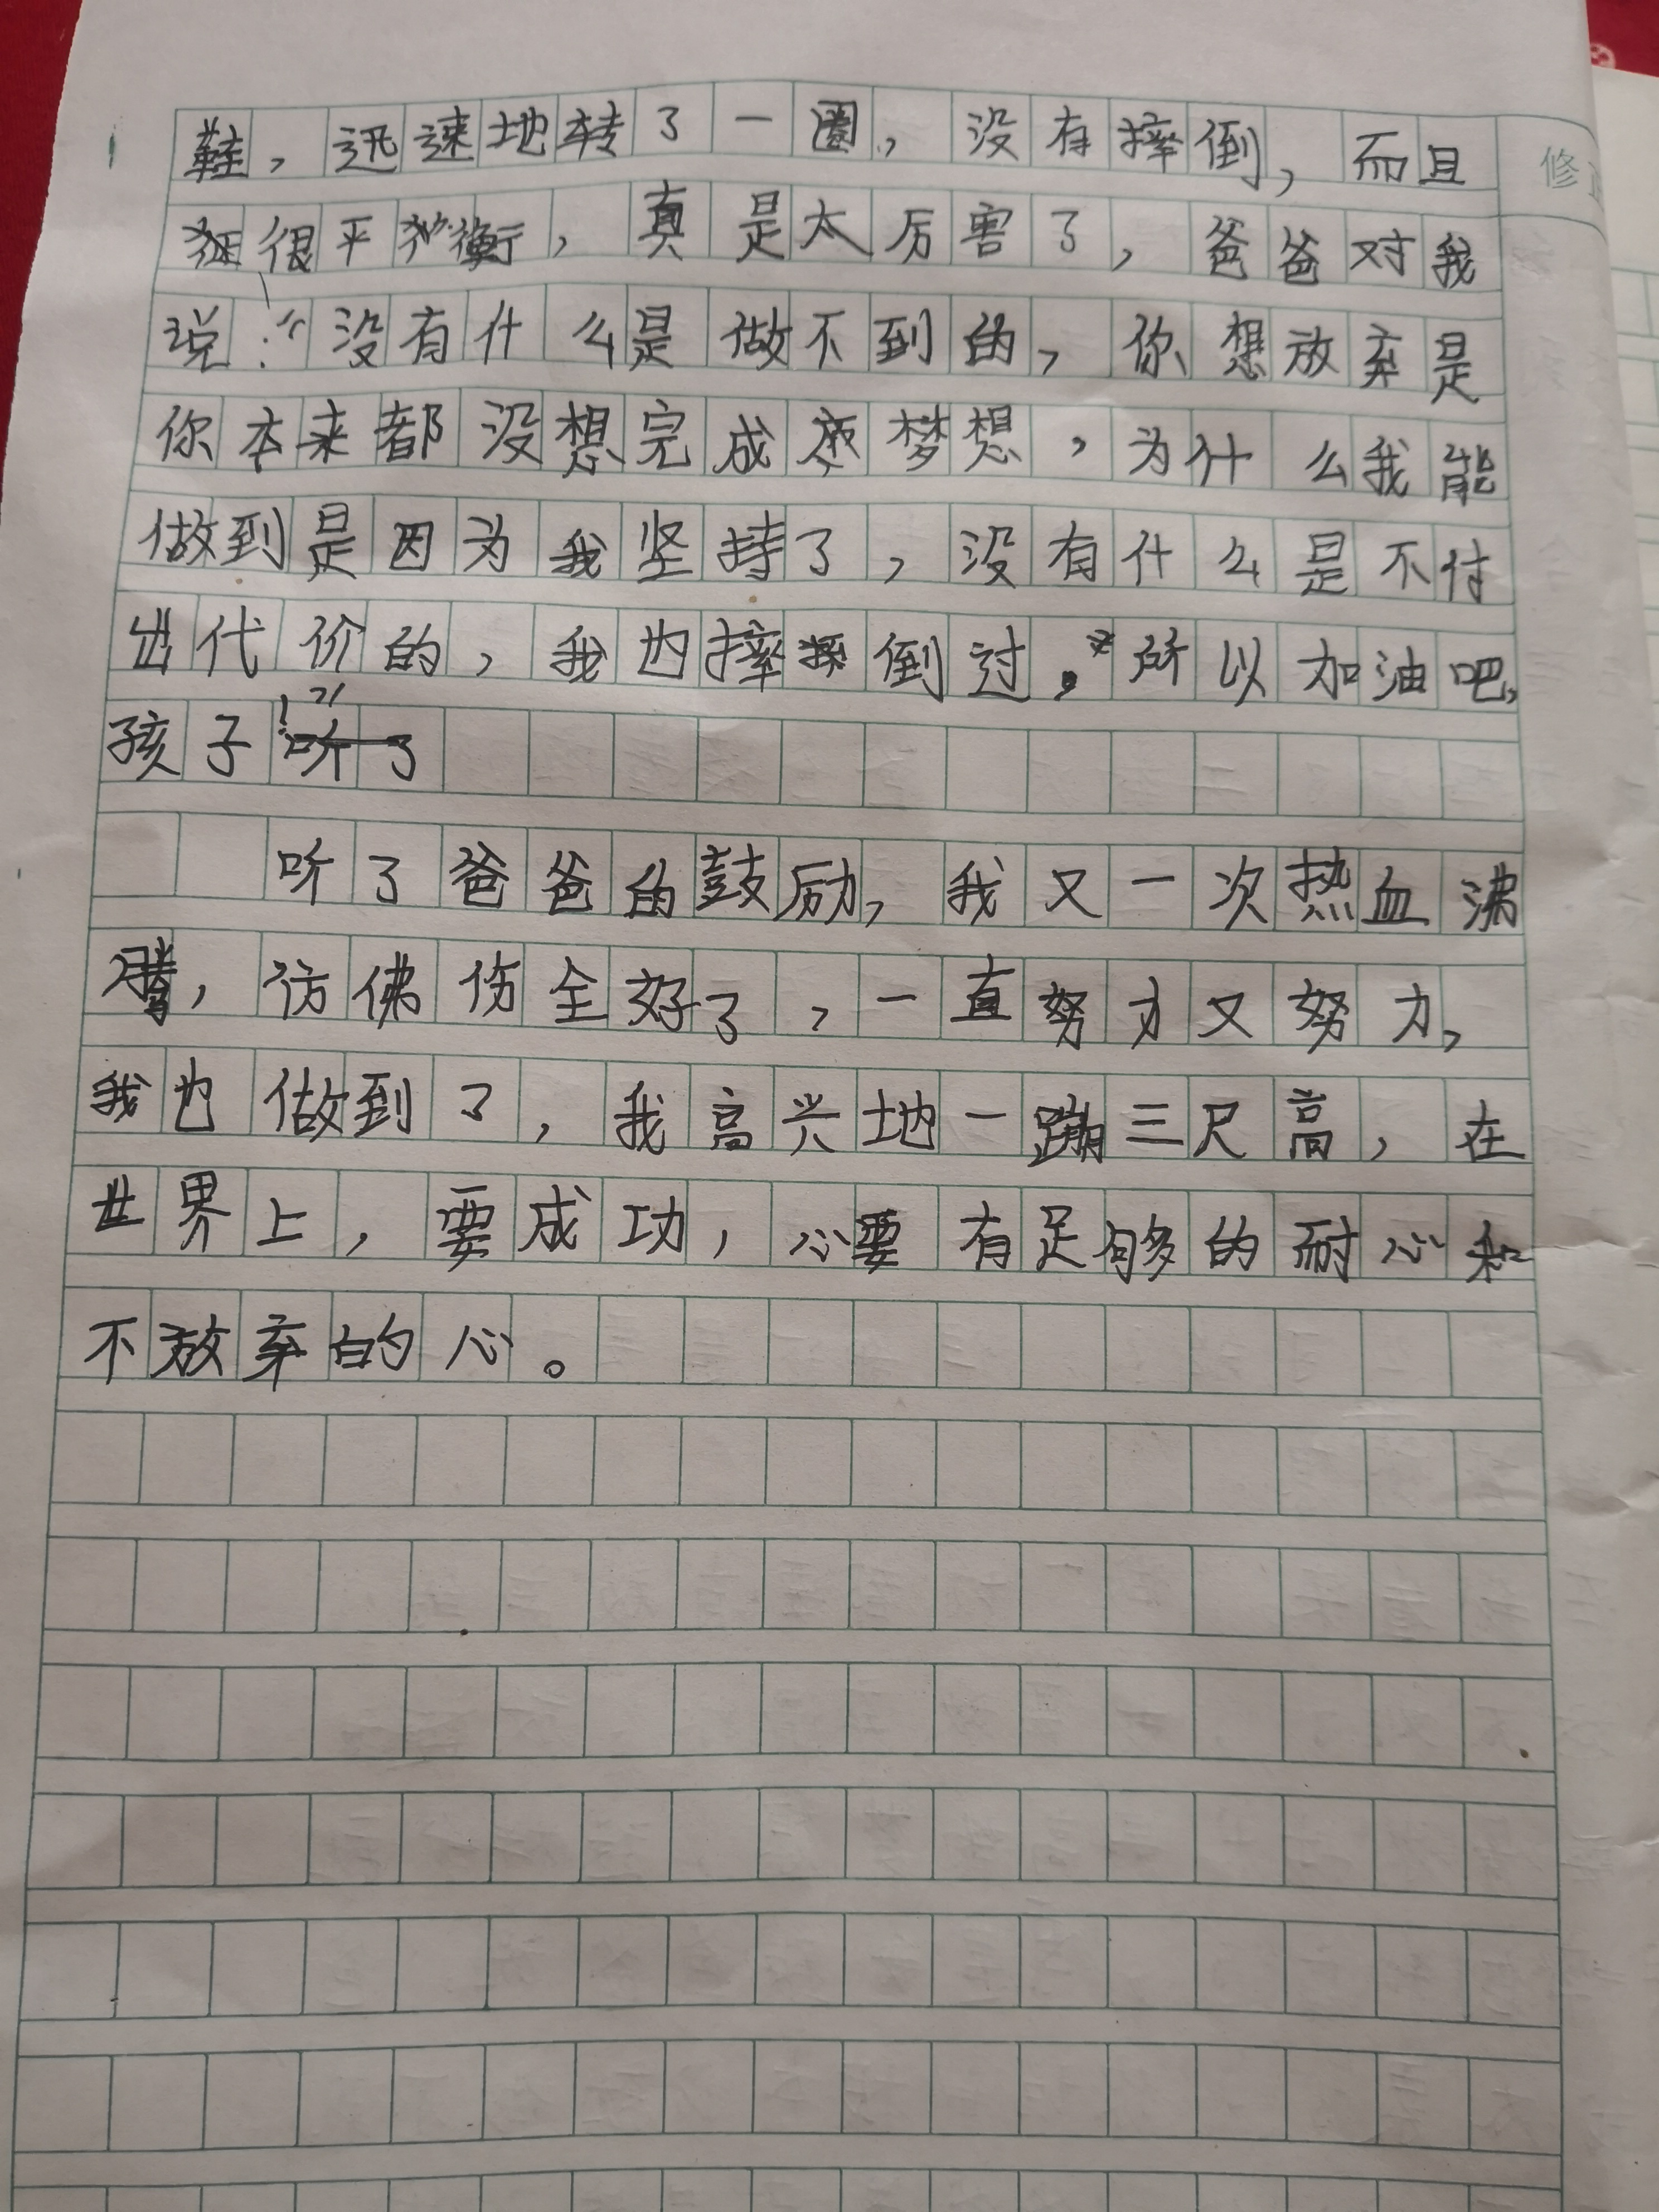 鞋，迅速地转了一圈，没有摔倒，而且
很平衡，真是太厉害了，爸爸对我
说：“没有什么是做不到的，你想放弃是
你本来都没想完成梦想，为什么我能
做到是因为我坚持了，没有什么是不付
出代价的，我也摔倒过，所以加油吧，
孩子！”
听了爸爸的鼓励，我又一次热血沸
腾，彷佛伤全好了，一直努力又努力，
我也做到了，我高兴地一蹦三尺高，在
世界上，要成功，心要有足够的耐心和
不放弃的心。
修